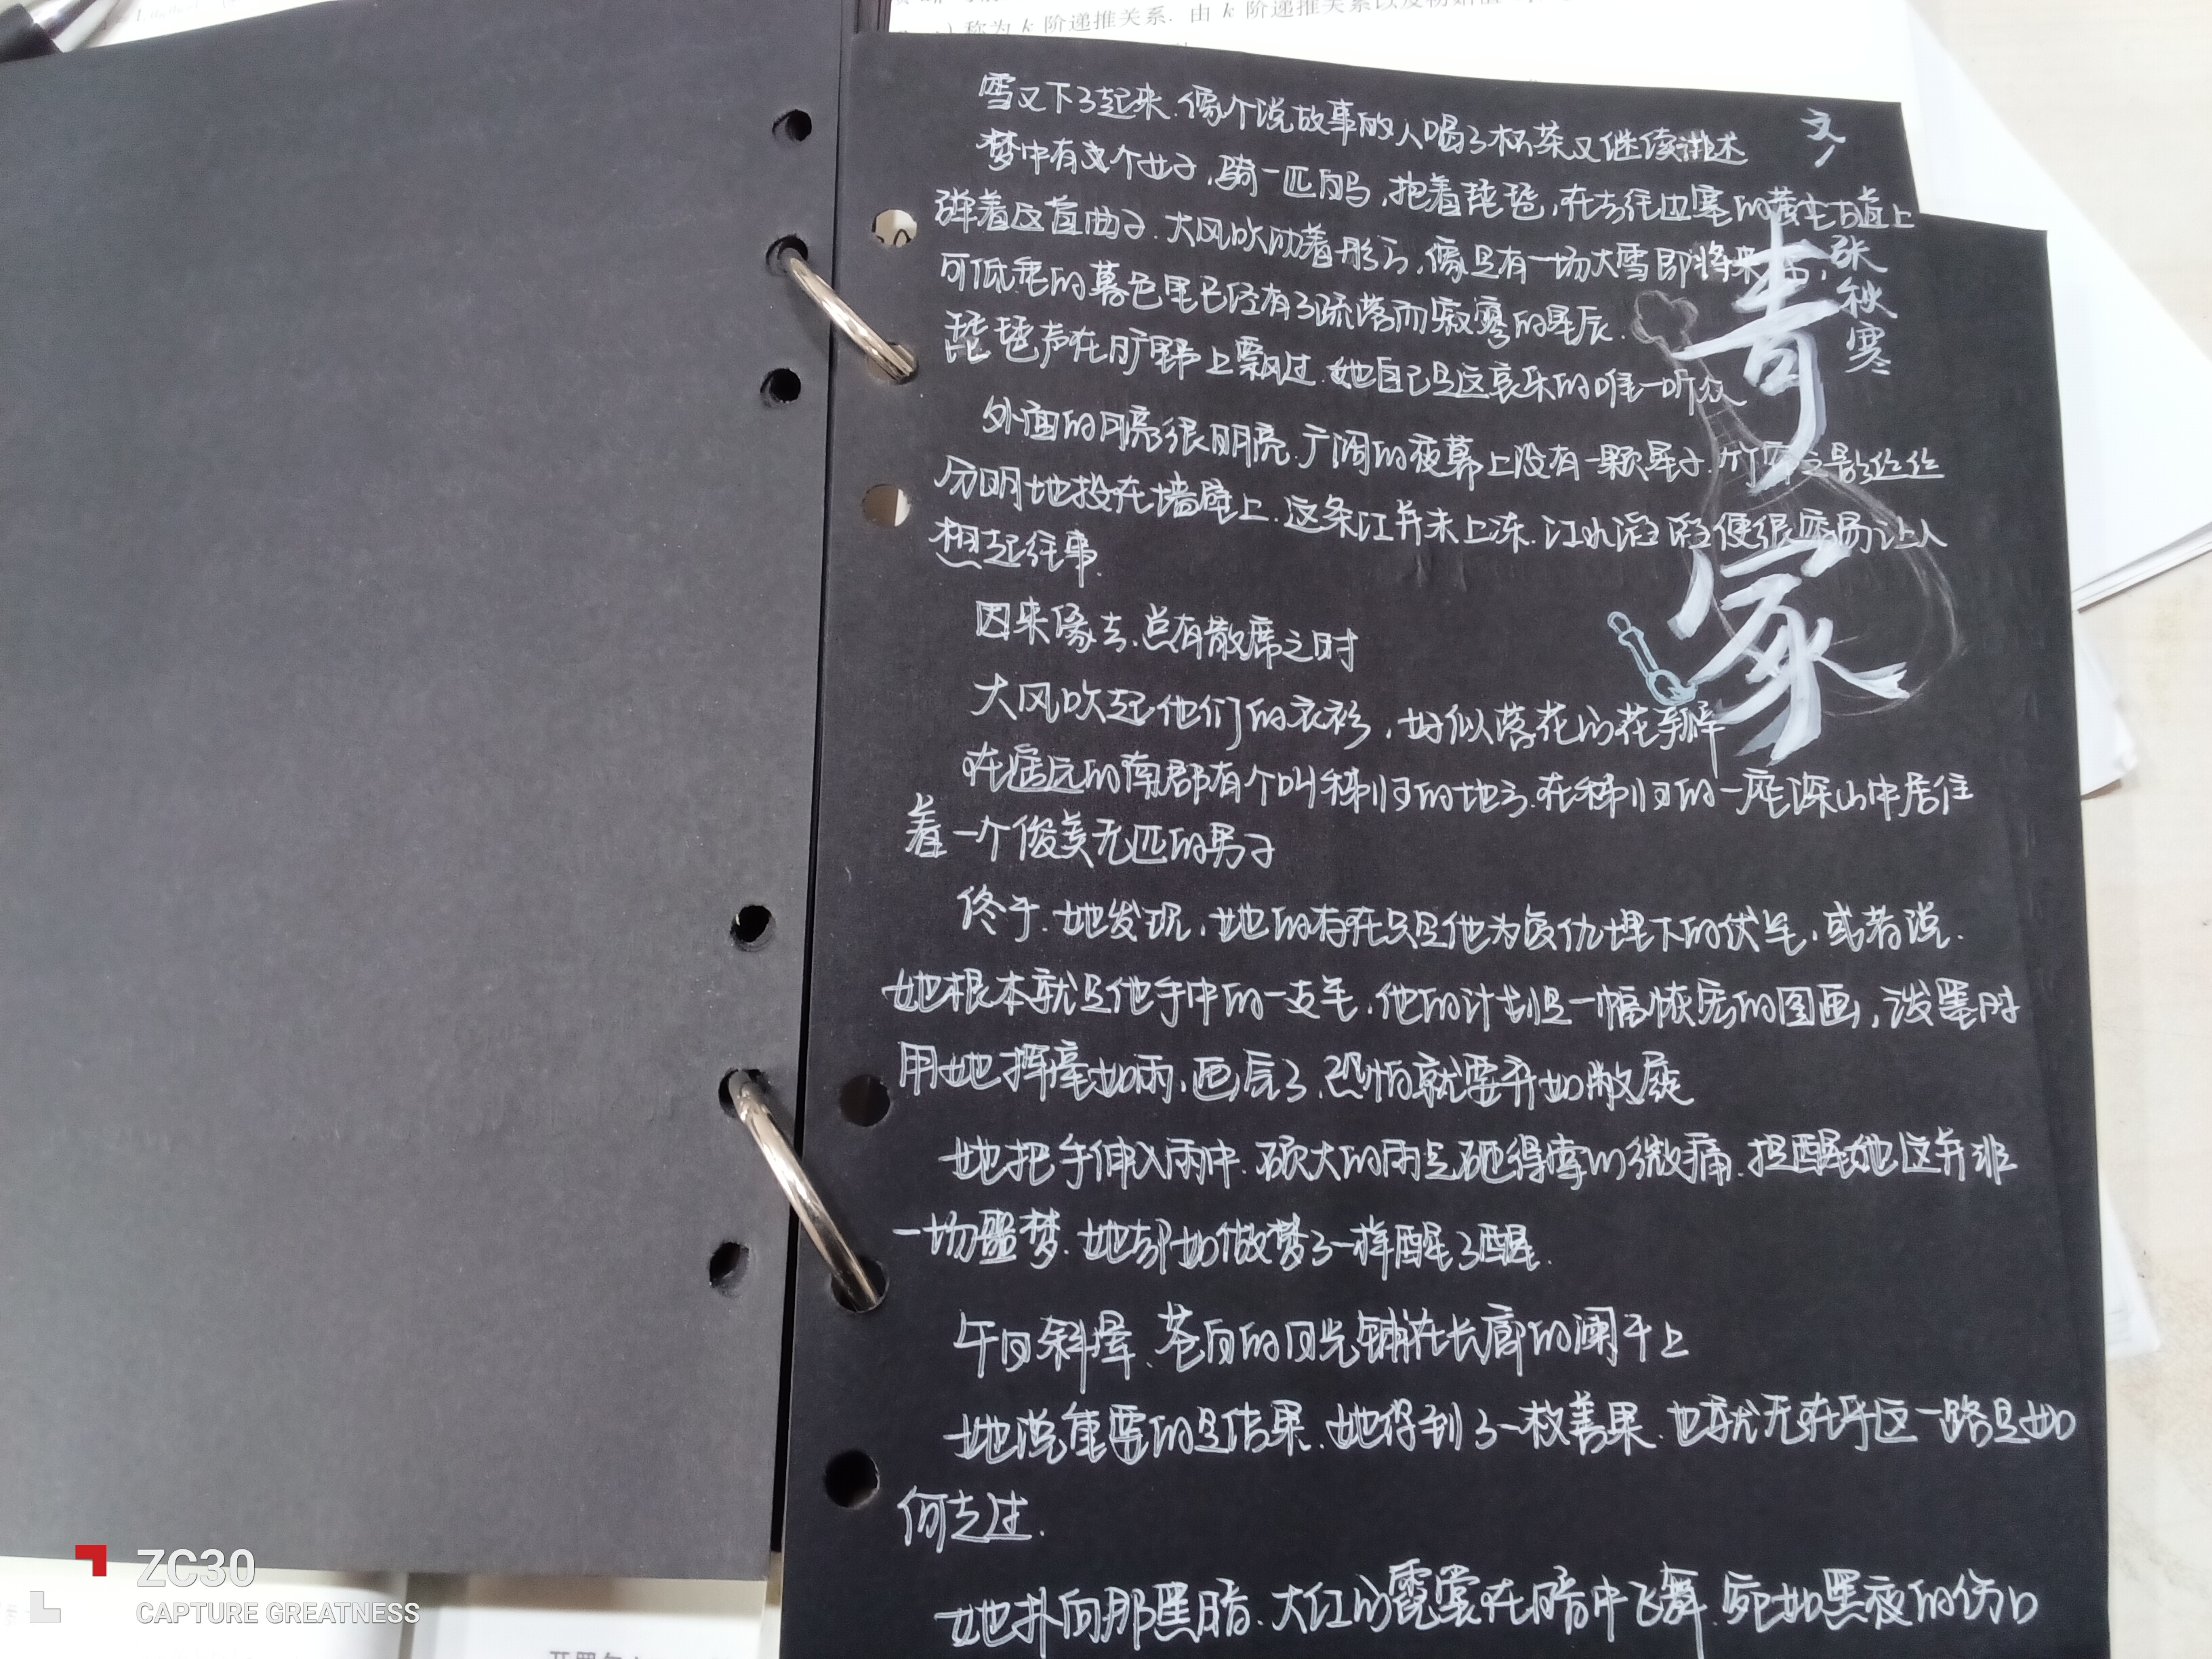 称为 k 阶递推关系. 由 k 阶递推关系以及初始值
雪又下了起来.像个说故事的人喝了杯茶又继续讲述
梦中有个女子,骑一匹白马,抱着琵琶,在去往边塞的黄土古道上
弹着这首曲子.大风吹动着彤云,像是有一场大雪即将来
可低垂的暮色里已经有了疏落而寂寥的星辰.
琵琶声在旷野上飘过.她自己是这哀乐的唯一听众
外面的月亮很明亮.广阔的夜幕上没有一颗星子.竹 之影丝丝
分明地投在墙壁上.这条江并未上冻.江水滔滔便很容易让人
想起往事.
因来缘去.总有散席之时
大风吹起他们的衣衫,好似落花的花瓣
在遥远的南郡有个叫秭归的地方.在秭归的一座深山中居住
着一个俊美无匹的男子
终于.她发现,她的存在只是他为复仇埋下的伏笔,或者说.
她根本就是他手中的一支笔.他的计划是一幅恢宏的图画,泼墨时
用她挥毫如雨.画完了.恐怕就要弃如敝屣
她把手伸入雨中.硕大的雨点砸得掌心微痛.提醒她这并非
一场噩梦.她却如做梦了一样醒了醒.
午日斜晖、苍白的日光铺在长廊的阑干上
她说重要的是结果.她得到了一枚善果.也就无在乎这一路是如
何走过.
她扑向那黑暗.大红的霓裳在暗中飞舞.宛如黑夜的伤口
文/
张秋寒
青冢
ZC30
CAPTURE GREATNESS